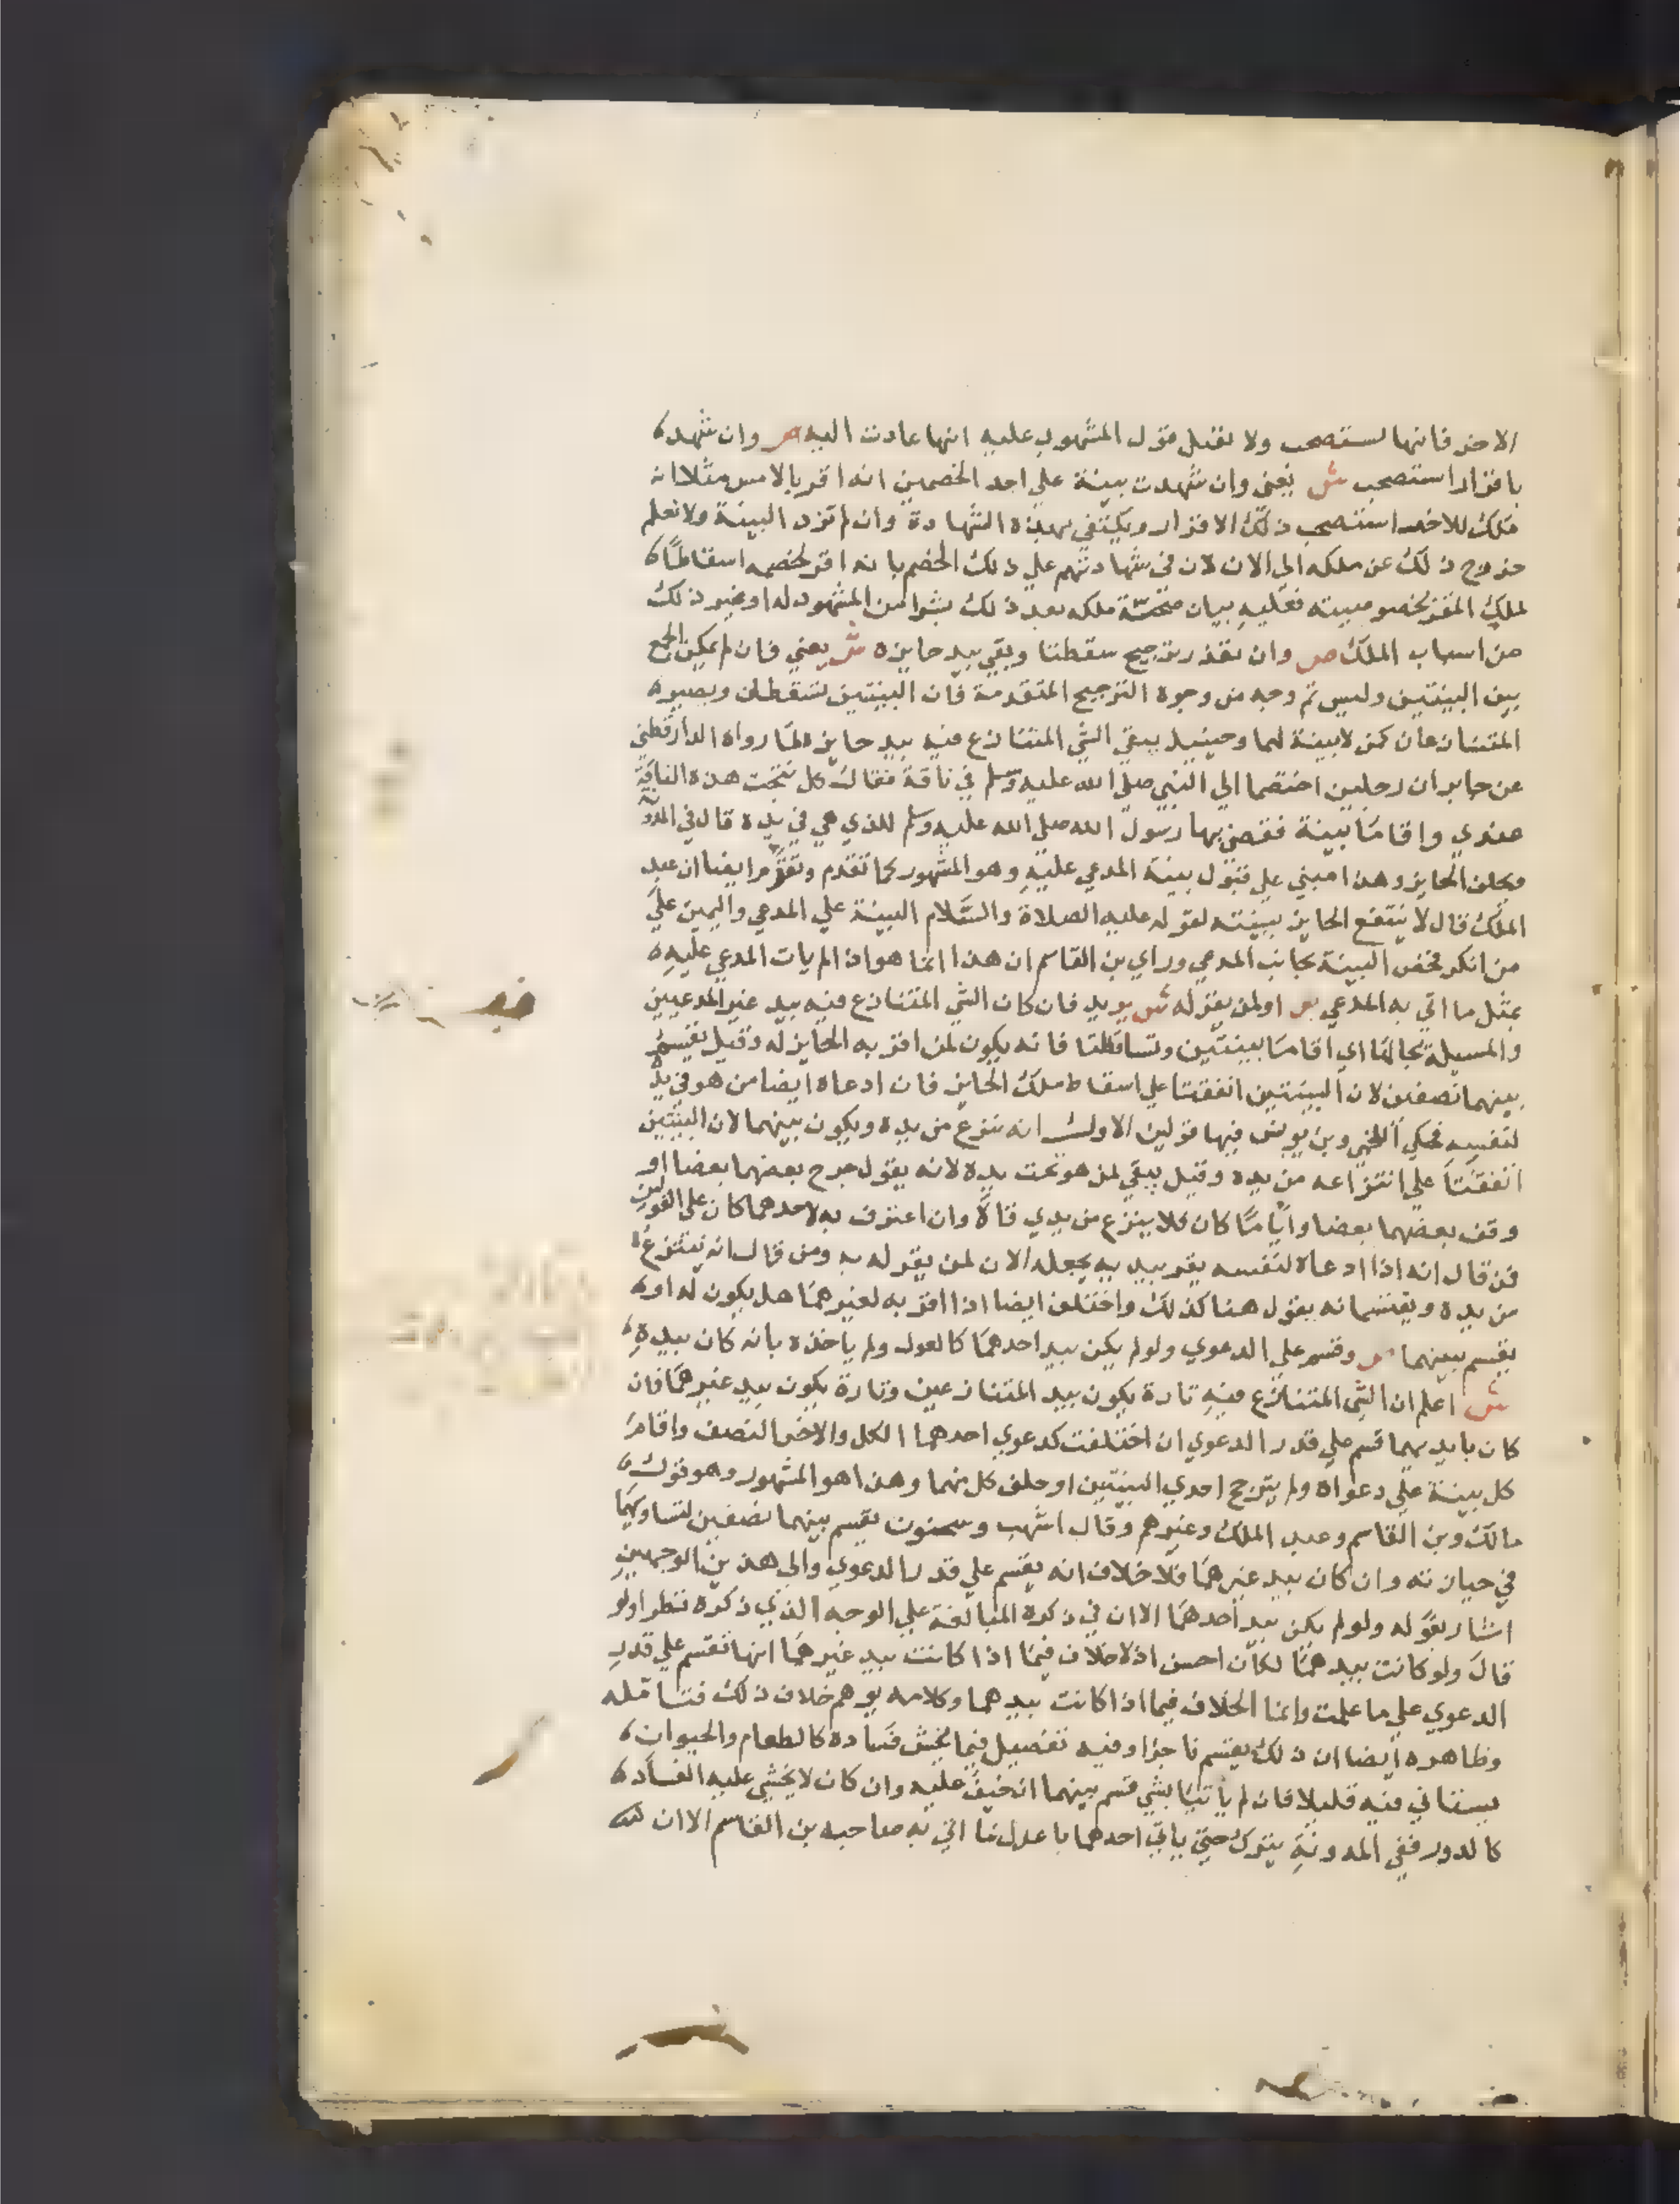 الاخر فانها تستصحب ولا يقبل قول المشهود عليه انها عادت اليه ص وان شهد
باقرار استصحب ش يعني وان شهدت بينة علي احد الخصمين انه اقر بالامس مثلا انه
ملك للاخر استصحب ذلك الاقرار ويكتفي بهذه الشهادة وان لم تزد البينة ولا نعلم
خروج ذلك عن ملكه الي الان لان في شهادتهم علي ذلك الخصم بانه اقر لخصمه اسقاطا
لملك المقر بخصوصيته فعليه بيان صحة ملكه بعد ذلك بشرا من المشهود له او غير ذلك
من اسباب الملك ص وان تعذر ترجيح سقطتا وبقي بيد حايزه ش يعني فان لم يمكن الجمع
بين البينتين وليس ثم وجه من وجوه الترجيح المتقدمة فان البينتين تسقطان ويصير
المتنازعان كمن لا بينة لهما وحينيد يبقي الشي المتنازع فيه بيد حايزه لما رواه الدارقطني
عن جابر ان رجلين اختصما الي النبي صلي الله عليه وسلم في ناقة فقال كل نتجت هذه الناقة
عندي واقاما بينة فقضي بها رسول الله صلي الله عليه وسلم للذي هي في يده قال في المدونة
ويحلف الحايز وهذا مبني علي قبول بينة المدعي عليه وهو المشهور كما تقدم وتقدم ايضا ان عبد
الملك قال لا ينتفع الحايز ببينته لقوله عليه الصلاة والسلام البينة علي المدعي واليمين علي
من انكر فخص البينة بجانب المدعي وراي بن القاسم ان هذا انما هو اذا لم يات المدعي عليه
بمثل ما اتي به المدعي ص او لمن يقر له ش يريد فان كان الشي المتنازع فيه بيد غير المدعيين
والمسيلة بحالها اي اقاما بينتين وتساقطتا فانه يكون لمن اقر به الحايز له وقيل يقسم
بينهما نصفين لان البينتين اتفقتا علي اسقاط ملك الحايز فان ادعاه ايضا من هو في يده
لنفسه فحكي اللخمي وبن يونس فيها قولين الاول انه ينزع من يده ويكون بينهما لان البينتين
اتفقتا علي انتزاعه من يده وقيل يبقي لمن هو تحت يده لانه يقول جرح بعضهما بعضا او
وقف بعضهما بعضا واياما كان فلا ينزع من يدي قالا وان اعترف به لاحدهما كان علي القولين
فمن قال انه اذا ادعاه لنفسه يقر بيد يه يجعله الان لمن يقر له به ومن قال انه ينتزع
من يده ويقتسمانه يقول هنا كذلك واختلف ايضا اذا اقر به لغيرهما هل يكون له او
يقسم بينهما ص وقسم علي الدعوي ولو لم يكن بيد احدهما كالعول ولم ياخذه بانه كان بيده
ش اعلم ان الشي المتنازع فيه تارة يكون بيد المتنازعين وتارة يكون بيد غيرهما فان
كان بايديهما قسم علي قدر الدعوي ان اختلفت كدعوي احدهما الكل والاخر النصف واقام
كل بينة علي دعواه ولم يترجح احدي البينتين او حلف كل منهما وهذا هو المشهور وهو قول
مالك وبن القاسم وعبد الملك وغيرهم وقال اشهب وسحنون يقسم بينهما نصفين لتساويهما
في حيازته وان كان بيد غيرهما فلا خلاف انه يقسم علي قدر الدعوي والي هذين الوجهين
اشار بقوله ولو لم يكن بيد احدهما الا ان في ذكره المبالغة علي الوجه الذي ذكره نظر اولو
قال ولو كانت بيدهما لكان احسن اذ لا خلاف فيما اذا كانت بيد غيرهما انها تقسم علي قدر
الدعوي علي ما علمت وانما الخلاف فيما اذا كانت بيدهما وكلامه يوهم خلاف ذلك فتامله
وظاهره ايضا ان ذلك يقسم ناجزا وفيه تفصيل فيما يخش فساده كالطعام والحيوان
يستاني فيه قليلا فان لم ياتيا بشي قسم بينهما ان خيف عليه وان كان لا يخشي عليه الفساد
كالدور ففي المدونة يترك حتي ياتي احدهما باعدل مما اتي به صاحبه بن القاسم الا ان